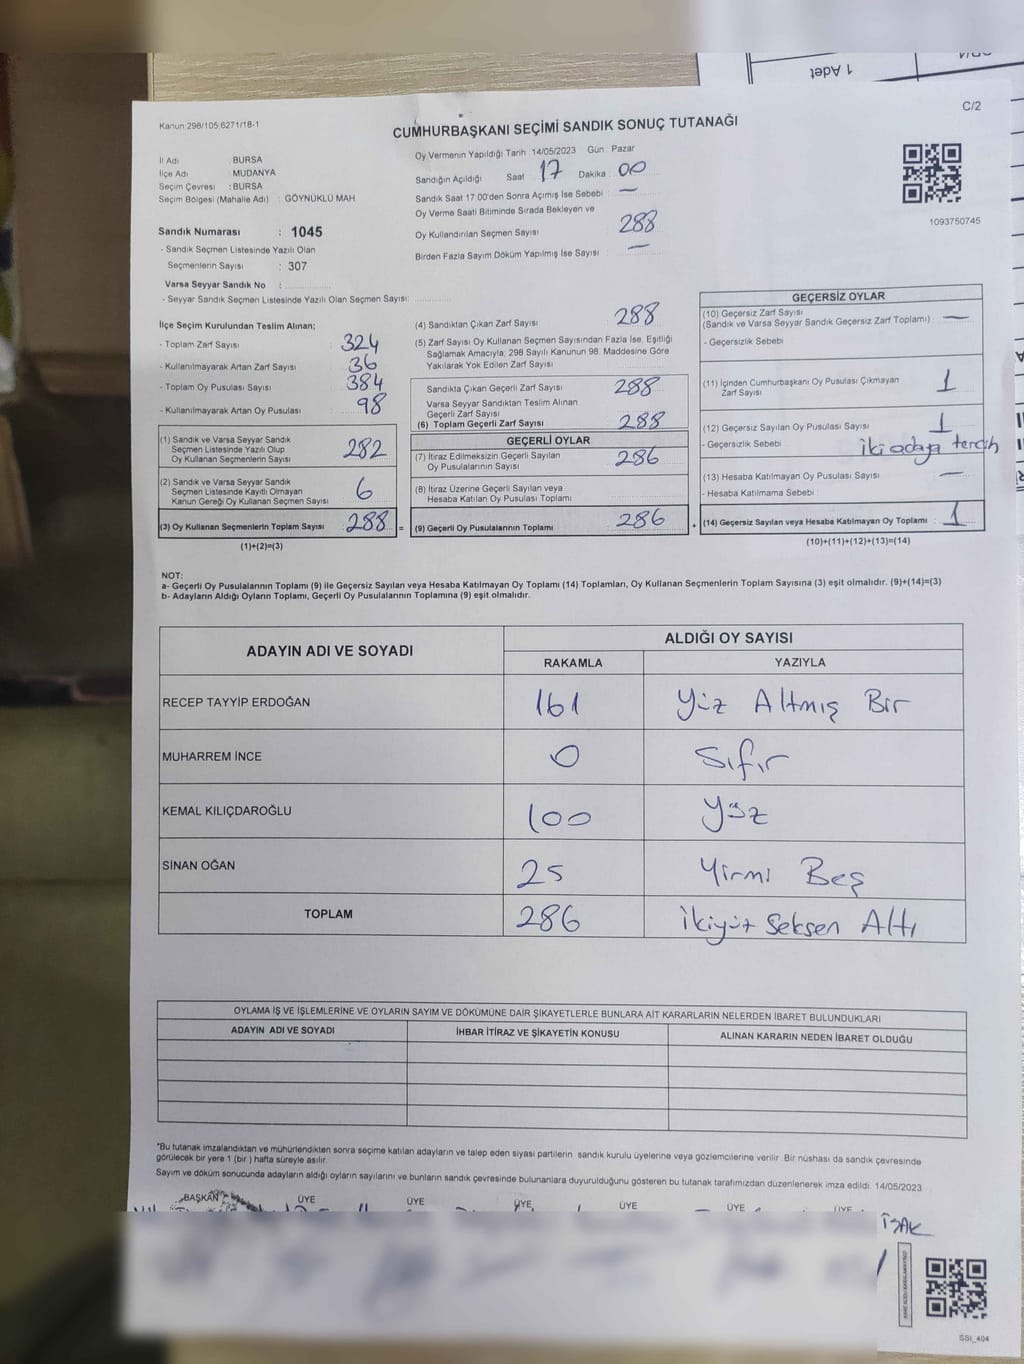 1 Adet
C/2
Kanun:298/105,6271/18-1
CUMHURBAŞKANI SEÇİMİ SANDIK SONUÇ TUTANAĞI
İl Adı : BURSA
İlçe Adı : MUDANYA
Seçim Çevresi : BURSA
Seçim Bölgesi (Mahalle Adı) : GÖYNÜKLÜ MAH
Sandık Numarası : 1045
- Sandık Seçmen Listesinde Yazılı Olan
Seçmenlerin Sayısı : 307
Varsa Seyyar Sandık No :
- Seyyar Sandık Seçmen Listesinde Yazılı Olan Seçmen Sayısı:
Oy Vermenin Yapıldığı Tarih : 14/05/2023 Gün : Pazar
Sandığın Açıldığı Saat 17 Dakika 00
Sandık Saat 17:00'den Sonra Açımış İse Sebebi : —
Oy Verme Saati Bitiminde Sırada Bekleyen ve
Oy Kullandırılan Seçmen Sayısı 288
Birden Fazla Sayım Döküm Yapılmış İse Sayısı : —
1093750745
İlçe Seçim Kurulundan Teslim Alınan;
- Toplam Zarf Sayısı : 324
- Kullanılmayarak Artan Zarf Sayısı : 36
- Toplam Oy Pusulası Sayısı : 384
- Kullanılmayarak Artan Oy Pusulası : 98
(1) Sandık ve Varsa Seyyar Sandık
Seçmen Listesinde Yazılı Olup
Oy Kullanan Seçmenlerin Sayısı : 282
(2) Sandık ve Varsa Seyyar Sandık
Seçmen Listesinde Kayıtlı Olmayan
Kanun Gereği Oy Kullanan Seçmen Sayısı : 6
(3) Oy Kullanan Seçmenlerin Toplam Sayısı : 288 =
(1)+(2)=(3)
(4) Sandıktan Çıkan Zarf Sayısı : 288
(5) Zarf Sayısı Oy Kullanan Seçmen Sayısından Fazla İse, Eşitliği
Sağlamak Amacıyla; 298 Sayılı Kanunun 98. Maddesine Göre
Yakılarak Yok Edilen Zarf Sayısı :
Sandıkta Çıkan Geçerli Zarf Sayısı : 288
Varsa Seyyar Sandıktan Teslim Alınan
Geçerli Zarf Sayısı :
(6) Toplam Geçerli Zarf Sayısı : 288
GEÇERLİ OYLAR
(7) İtiraz Edilmeksizin Geçerli Sayılan
Oy Pusulalarının Sayısı : 286
(8) İtiraz Üzerine Geçerli Sayılan veya
Hesaba Katılan Oy Pusulası Toplamı :
(9) Geçerli Oy Pusulalarının Toplamı : 286 +
GEÇERSİZ OYLAR
(10) Geçersiz Zarf Sayısı
(Sandık ve Varsa Seyyar Sandık Geçersiz Zarf Toplamı) : —
- Geçersizlik Sebebi :
(11) İçinden Cumhurbaşkanı Oy Pusulası Çıkmayan
Zarf Sayısı : 1
(12) Geçersiz Sayılan Oy Pusulası Sayısı : 1
- Geçersizlik Sebebi : iki adaya tercih
(13) Hesaba Katılmayan Oy Pusulası Sayısı : —
- Hesaba Katılmama Sebebi :
(14) Geçersiz Sayılan veya Hesaba Katılmayan Oy Toplamı : 1
(10)+(11)+(12)+(13)=(14)
NOT:
a- Geçerli Oy Pusulalarının Toplamı (9) ile Geçersiz Sayılan veya Hesaba Katılmayan Oy Toplamı (14) Toplamları, Oy Kullanan Seçmenlerin Toplam Sayısına (3) eşit olmalıdır. (9)+(14)=(3)
b- Adayların Aldığı Oyların Toplamı, Geçerli Oy Pusulalarının Toplamına (9) eşit olmalıdır.
ADAYIN ADI VE SOYADI
ALDIĞI OY SAYISI
RAKAMLA YAZIYLA
RECEP TAYYİP ERDOĞAN 161 Yüz Altmış Bir
MUHARREM İNCE 0 Sıfır
KEMAL KILIÇDAROĞLU 100 Yüz
SİNAN OĞAN 25 Yirmi Beş
TOPLAM 286 ikiyüz Seksen Altı
OYLAMA İŞ VE İŞLEMLERİNE VE OYLARIN SAYIM VE DÖKÜMÜNE DAİR ŞİKAYETLERLE BUNLARA AİT KARARLARIN NELERDEN İBARET BULUNDUKLARI
ADAYIN ADI VE SOYADI İHBAR İTİRAZ VE ŞİKAYETİN KONUSU ALINAN KARARIN NEDEN İBARET OLDUĞU
*Bu tutanak imzalandıktan ve mühürlendikten sonra seçime katılan adayların ve talep eden siyasi partilerin sandık kurulu üyelerine veya gözlemcilerine verilir. Bir nüshası da sandık çevresinde
görülecek bir yere 1 (bir ) hafta süreyle asılır.
Sayım ve döküm sonucunda adayların aldığı oyların sayılarını ve bunların sandık çevresinde bulunanlara duyurulduğunu gösteren bu tutanak tarafımızdan düzenlenerek imza edildi. 14/05/2023
BAŞKAN ÜYE ÜYE ÜYE ÜYE ÜYE ÜYE
SSI_404